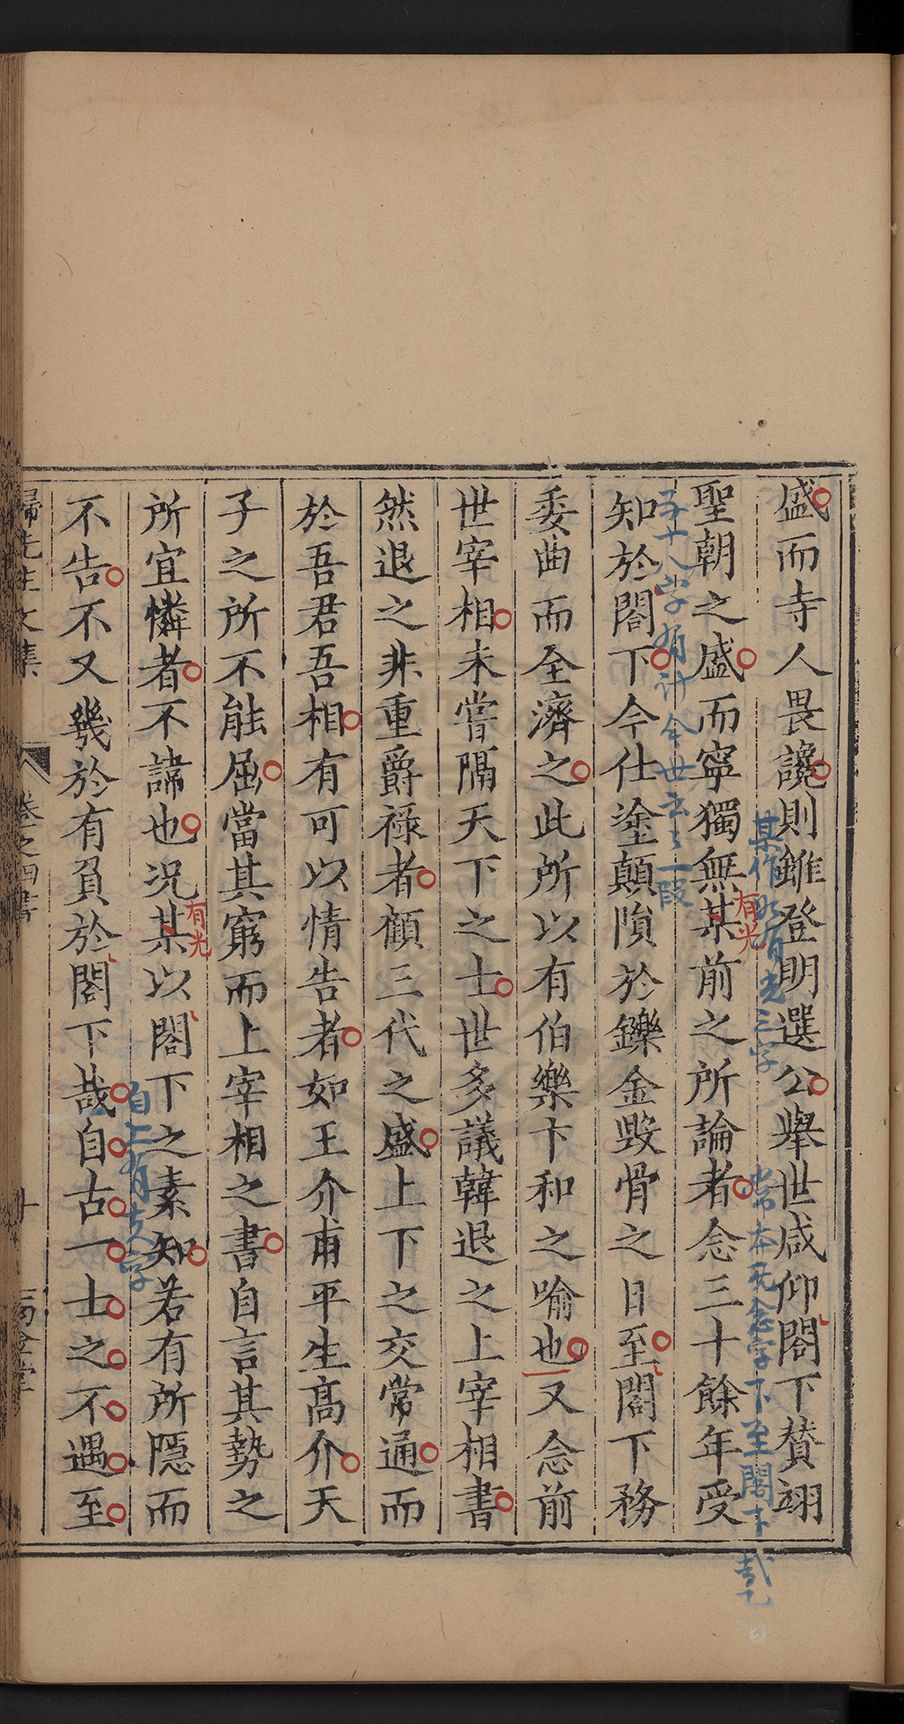 盛而寺人畏讒則雖登明選公舉世咸仰閣下贊翊
聖朝之盛而寧獨無某前之所論者念三十餘年受
有光
知於閣下今仕塗顛隕於鑠金毀骨之日至閣下務
委曲而全濟之此所以有伯樂卞和之喻也又念前
世宰相未嘗隔天下之士世多議韓退之上宰相書
然退之非重爵祿者顧三代之盛上下之交常通而
於吾君吾相有可以情告者如王介甫平生高介天
子之所不能屈當其窮而上宰相之書自言其勢之
所宜憐者不諱也況某以閣下之素知若有所隱而
有光
不告不又幾於有負於閣下哉自古一士之不遇至
自上有夫字
常本無念字下至閣下哉
歸先生文集
卷之四書
十